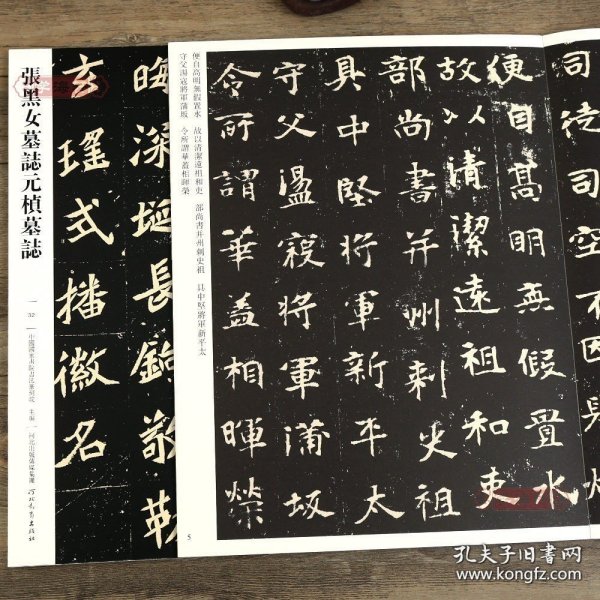 張黑女墓誌元楨墓誌
一
32
主编
河北教育出版社
晦深埏長鉤敬勒
玄瑾式播徽名
便自高明無假置水
故以清潔遠祖和吏
部尚書并州刺史祖
具中堅將軍新平太
守父湯寇將軍蒲坂
令所謂華蓋相暉榮
司徒司空不
便自高明無假置水
故以清潔遠祖和吏
部尚書并州刺史祖
具中堅將軍新平太
守父盪寇將軍蒲坂
令所謂華蓋相暉榮
5
孔夫子旧书网
www.kongfz.com